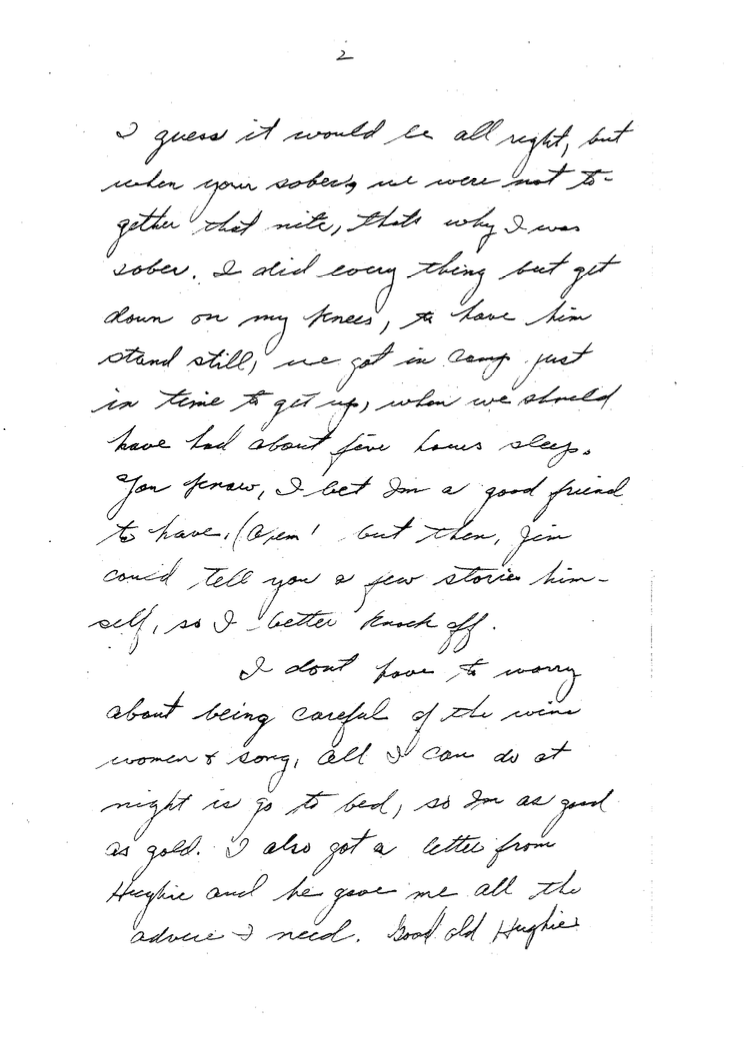 2
I guess it would be all right, but
when your sober, we were not to-
gether that nite, thats why I was
sober. I did every thing but get
down on my knees, to have him
stand still, we got in camp just
in time to get up, when we should
have had about five hours sleep.
You know, I bet Im a good friend
to have, but then, Jim
could tell you a few stories him-
self, so I better knock off.
I dont have to worry
about being careful of the wine
women & song, all I can do at
night is go to bed, so Im as good
as gold. I also got a letter from
Hughie and he gave me all the
advice I need. Good old Hughie